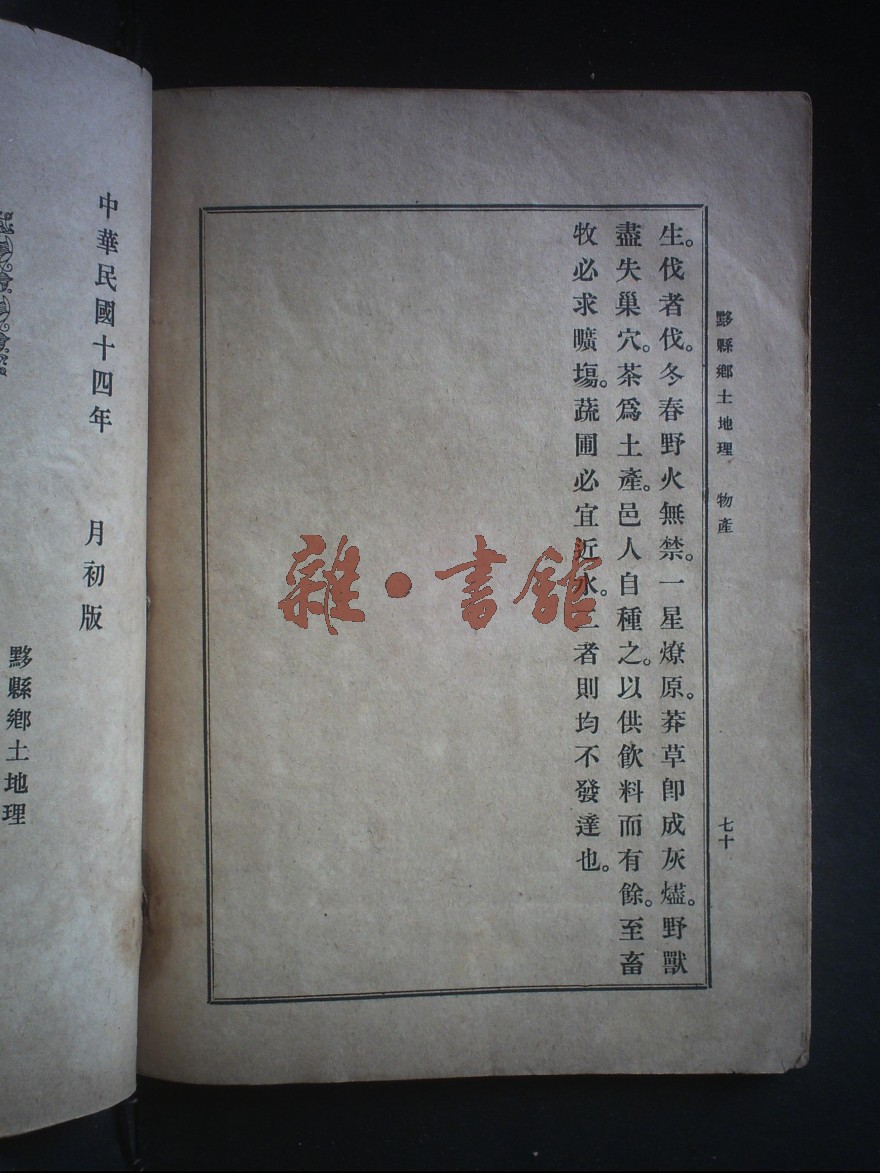 黟縣鄉土地理 物產 七十
生。伐者伐。冬春野火無禁。一星燎原。莽草卽成灰燼。野獸
盡失巢穴。茶爲土產。邑人自種之。以供飮料而有餘。至畜
牧必求曠塲。蔬圃必宜近水。二者則均不發達也。
雜·書館
中華民國十四年 月初版
黟縣鄉土地理